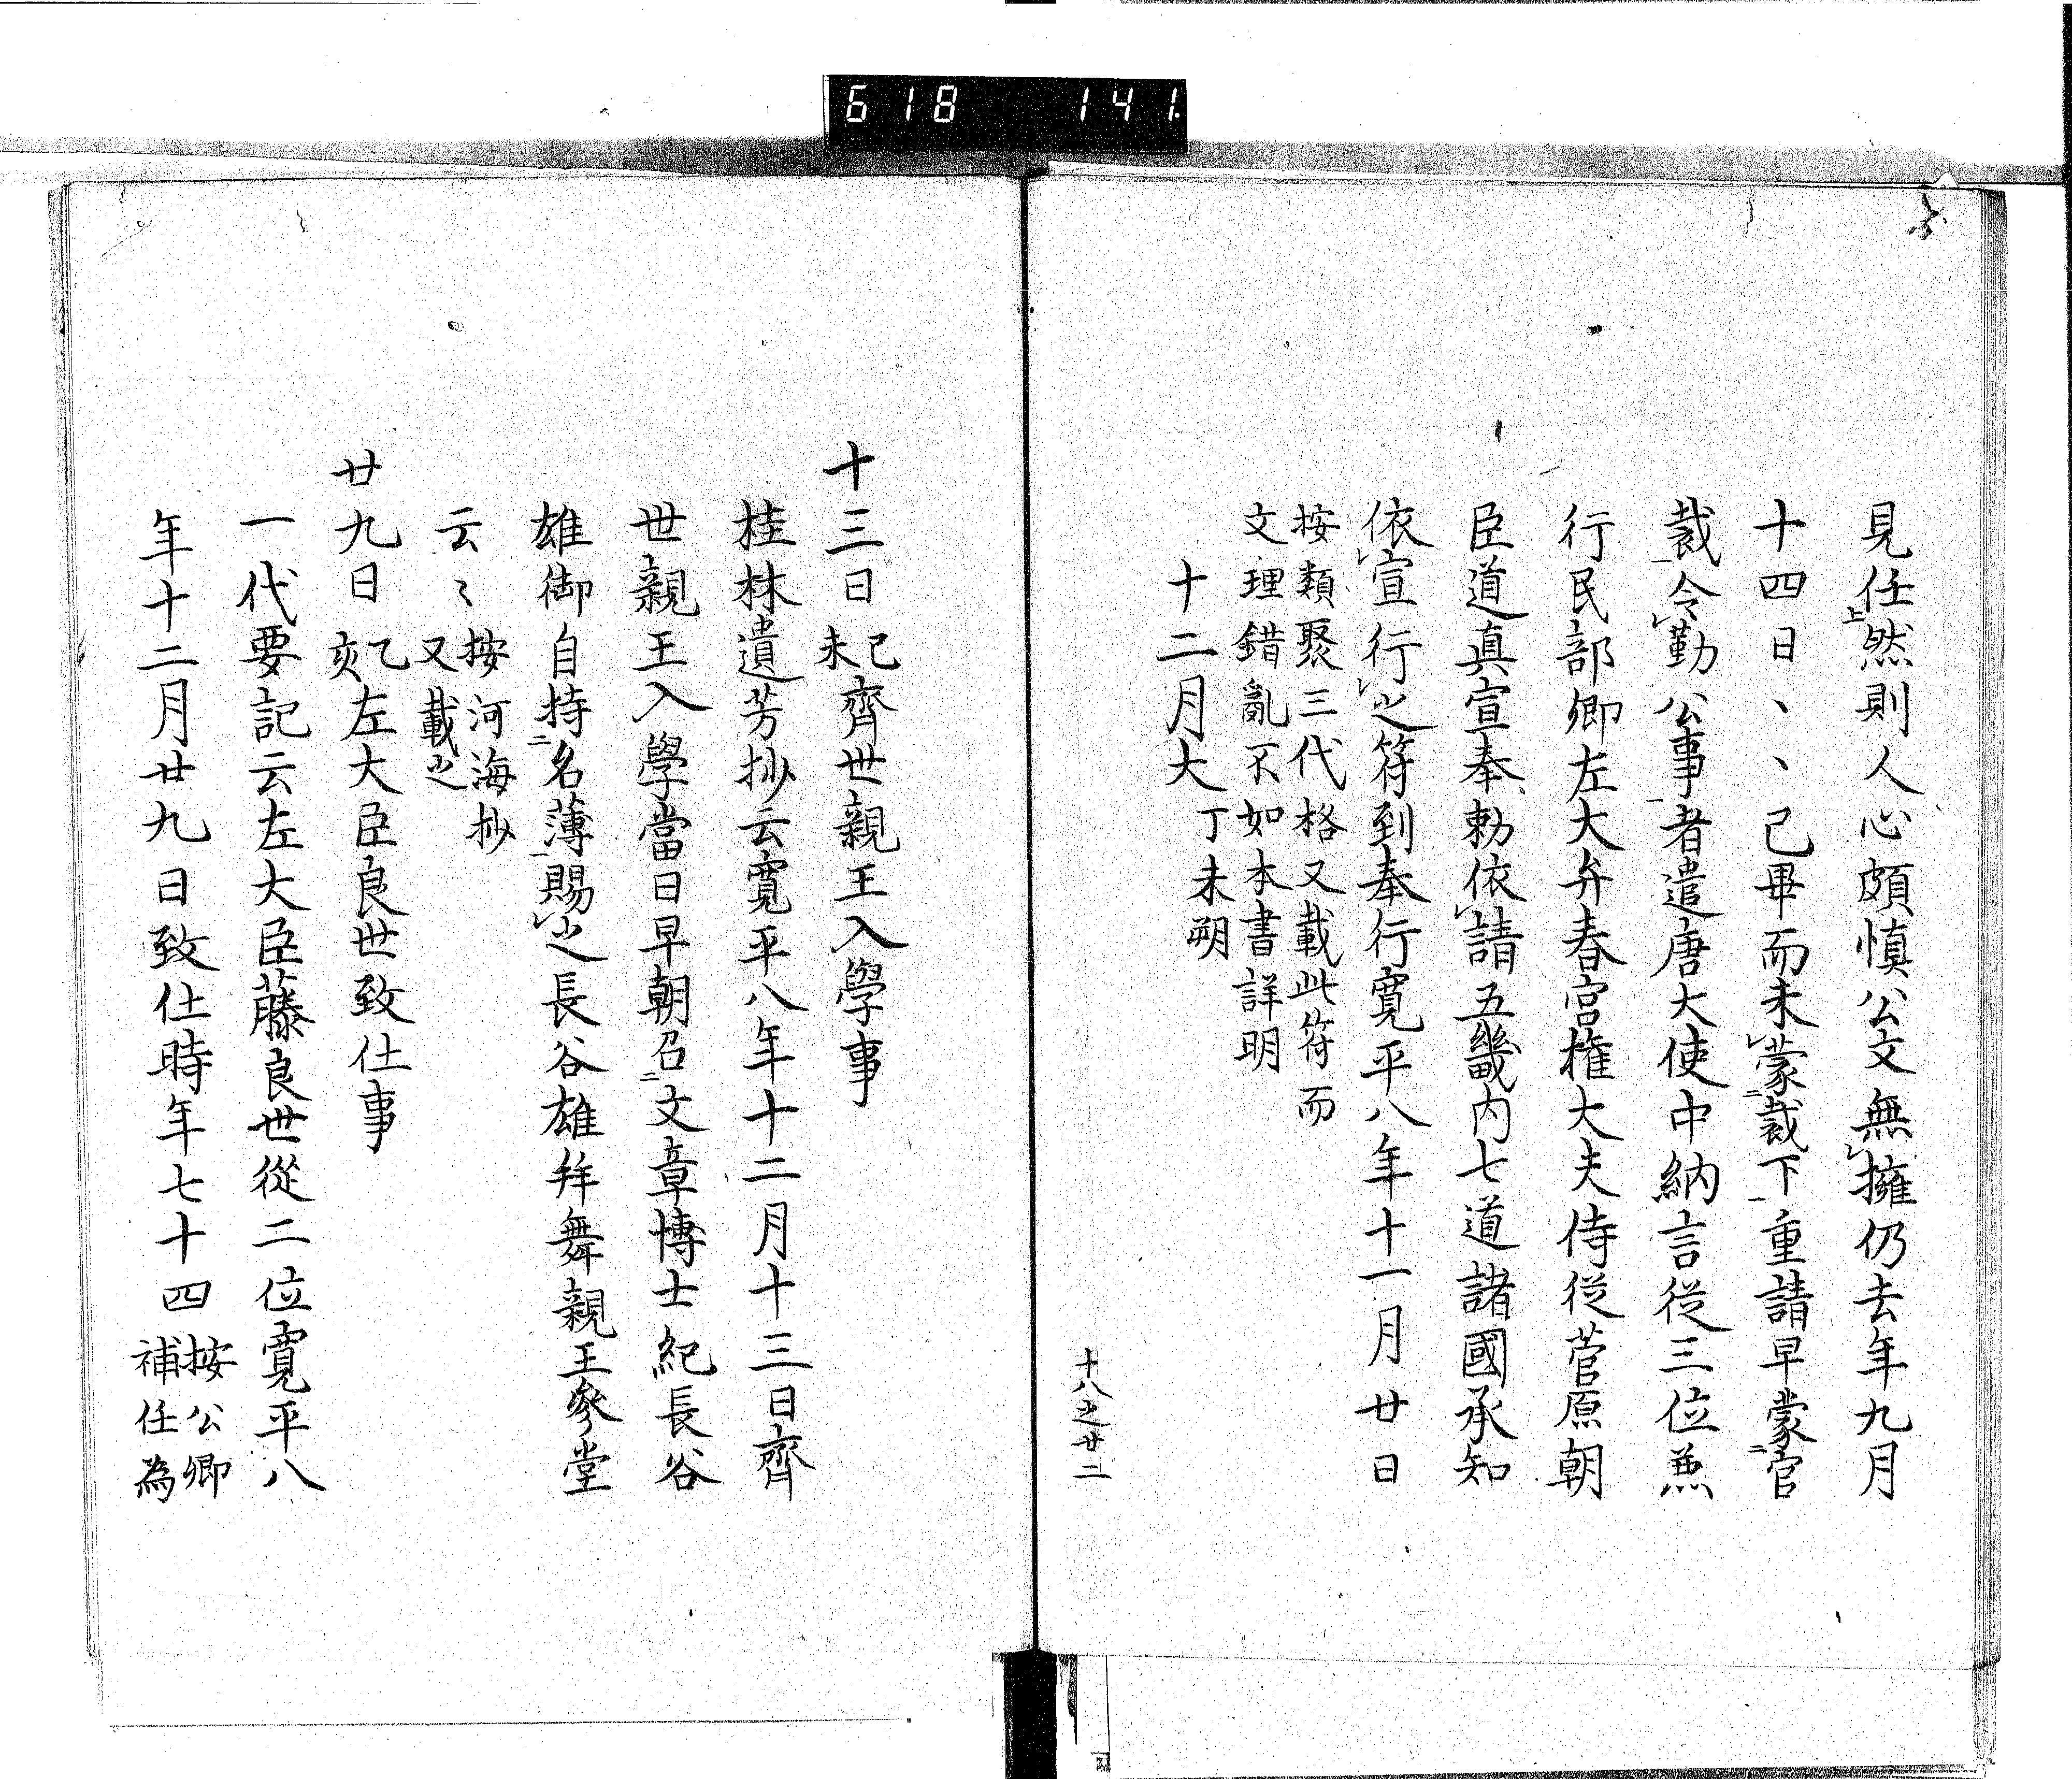 618 141.
見任然則人心頗慎公文無擁仍去年九月
十四日、、己畢而未蒙裁下重請早蒙官
裁令勤公事者遣唐大使中納言従三位兼
行民部卿左大弁春宮権大夫侍従菅原朝
臣道真宣奉勅依請五畿内七道諸國承知
依宣行之符到奉行寛平八年十一月廿日
按類聚三代格又載此符而
文理錯亂不如本書詳明
十二月大丁未朔
十八之廿二
十三日己未齊世親王入學事
桂林遺芳抄云寛平八年十二月十三日齊
世親王入學當日早朝召文章博士紀長谷
雄御自持名薄賜之長谷雄拜舞親王參堂
云〻按河海抄又載之
廿九日乙亥左大臣良世致仕事
一代要記云左大臣藤良世從二位寛平八
年十二月廿九日致仕時年七十四按公卿補任為